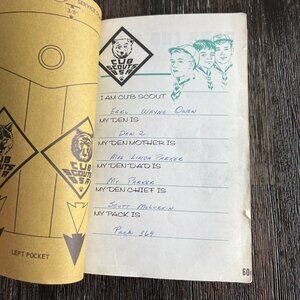 SERVICE
CUB
SCOUTS
BSA
I AM CUB SCOUT
Earl Wayne Owen
MY DEN IS
Den 2
MY DEN MOTHER IS
Mrs Linda Parker
MY DEN DAD IS
Mr. Parker
MY DEN CHIEF IS
Scott
MY PACK IS
Pack 369
CUB
SCOUTS
BSA
LEFT POCKET